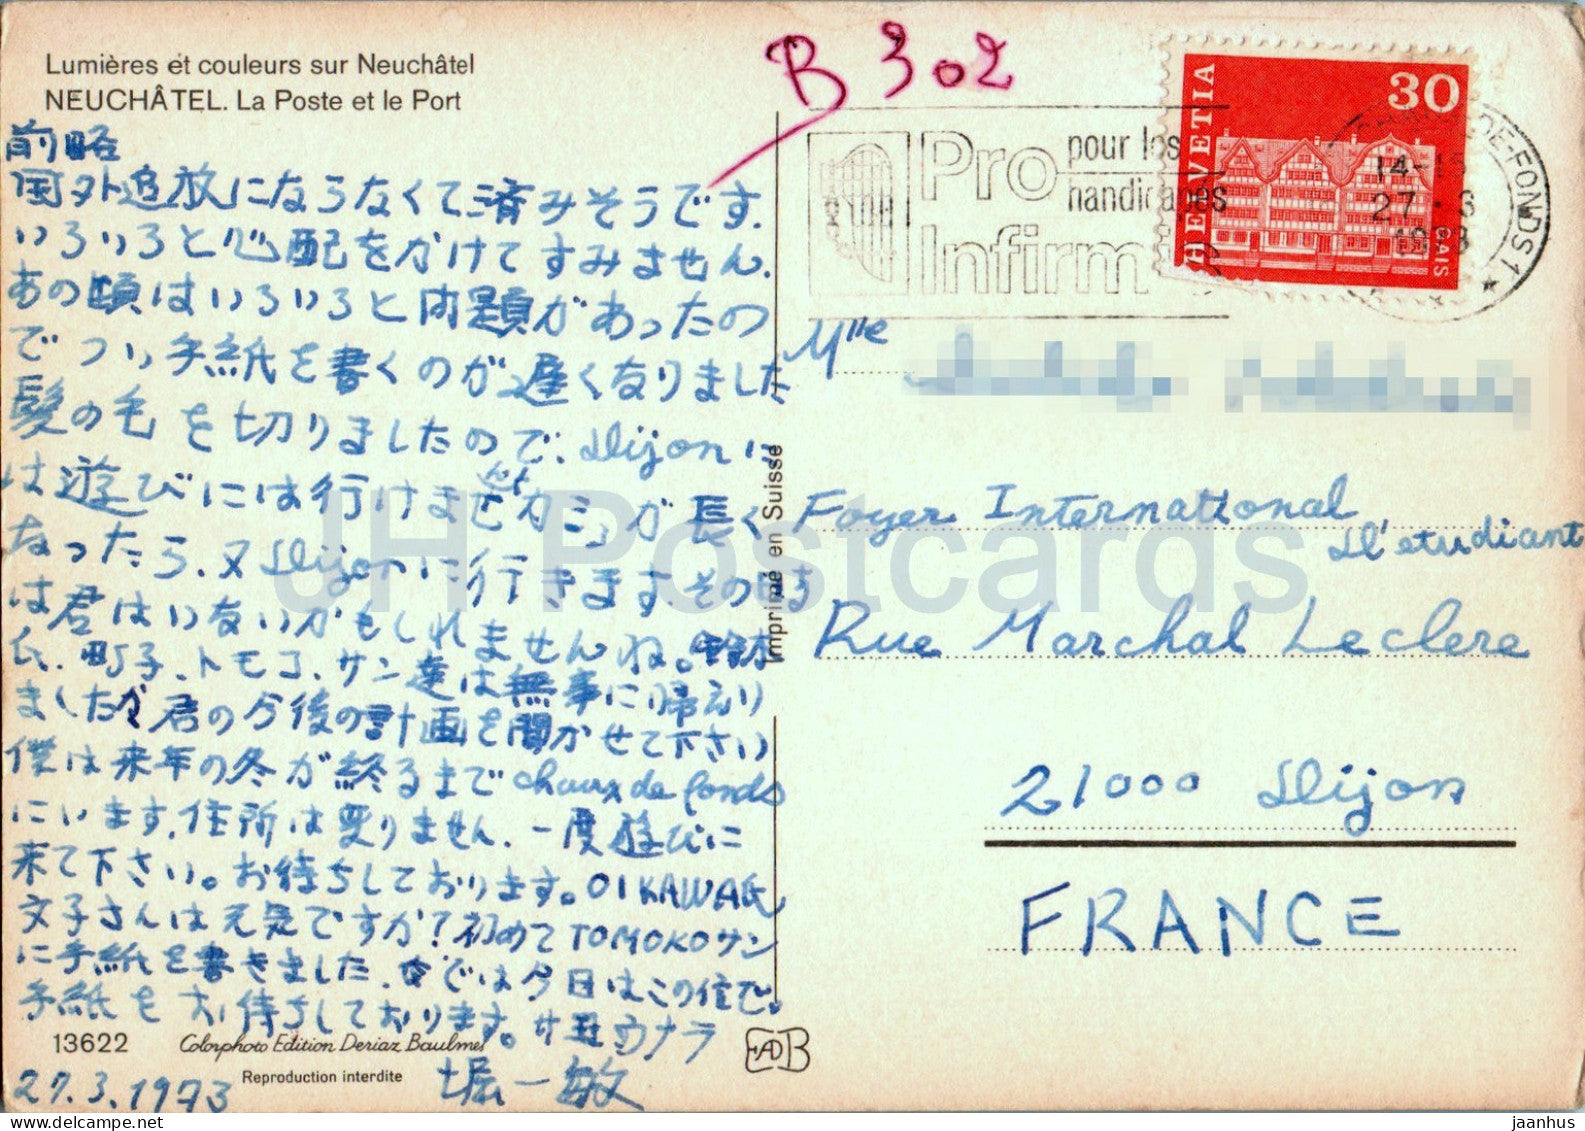 Lumières et couleurs sur Neuchâtel
NEUCHÂTEL. La Poste et le Port
B 302
前略
国外追放にならなくて済みそうです.
いろいろと心配をかけてすみません.
あの頃はいろいろと内題があったの
でつい手紙を書くのが遅くなりました
髪の毛を切りましたので、Dijonに
は遊びには行けませんが カミが長く
なったら、又Dijonに行きます.その時
は君はいないかもしれませんね。鈴木
氏、町子、トモコ、サン達は無事に帰えり
ましたか 君の今後の計画を聞かせて下さい
僕は来年の冬が終るまでchaux de fonds
にいます.住所は変りません.一度遊びに
来て下さい。お待ちしております。OIKAWA氏
文子さんは元気ですか?初めてTOMOKOサン
に手紙を書きました.ではでは今日はこの位で。
手紙をお待ちしております。サヨウナラ
堀一敏
27.3.1973
13622
Colorphoto Edition Deriaz Baulmes
Reproduction interdite
EDB
Imprimé en Suisse
Pro Infirmis
pour les handicapés
HELVETIA
30
GAIS
CHAUX-DE-FONDS 1
14-15
27.-3
1973
Mlle
Foyer International
d'etudiant
Rue Marchal Leclere
21000 Dijon
FRANCE
JH Postcards
www.delcampe.net
jaanhus